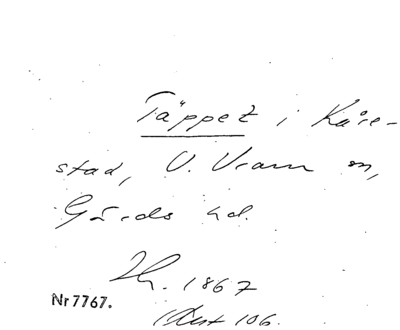 Täppet i Kåre-
stad, V. Vram sn,
Gärds hd.
1867
Nr 7767.
106.